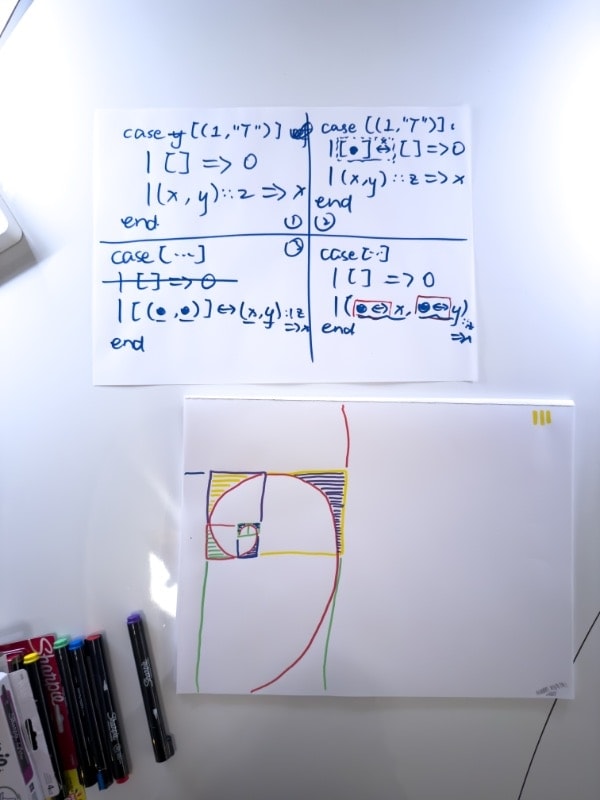 case y [(1,"T")]
| [] => 0
|(x, y)::z => x
end ①
case [(1,"T")].
|[●]↔[] =>0
|(x,y)::z => x
end
②
case [...] ③
| [] => 0
|[(●,●)]↔(x,y)::z
=>x
end
case[..]
| [] => 0
|(●↔x, ●↔y)::z
=>x
end
Sharpie
Sharpie